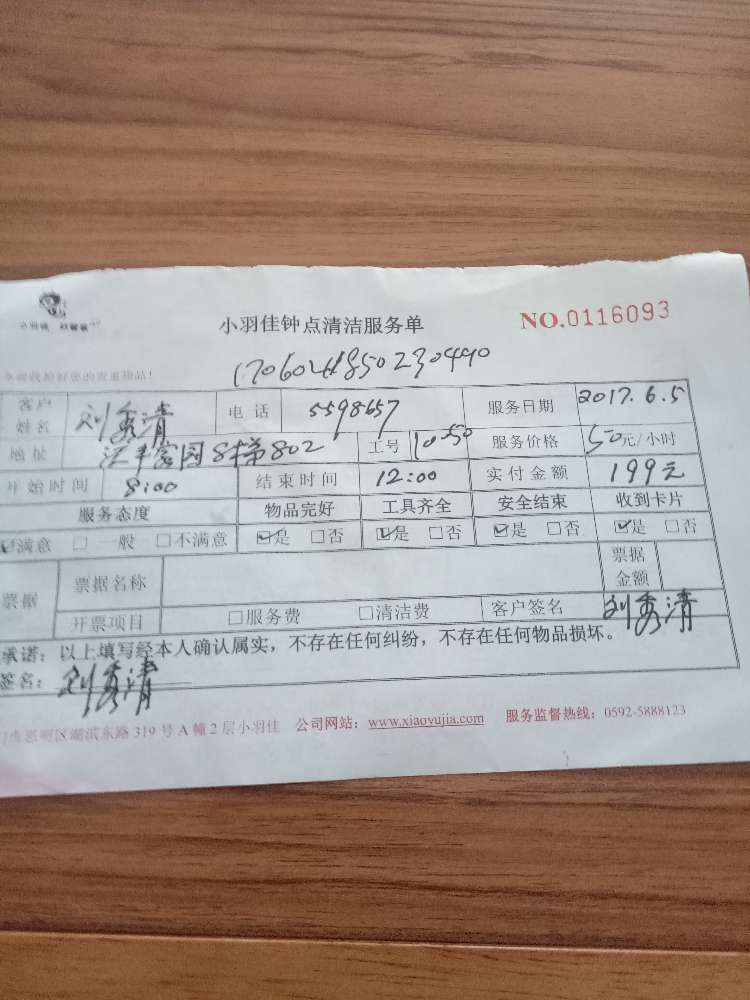 小羽佳钟点清洁服务单 NO.0116093
1706041850230490
客户姓名 刘秀清 电话 5598657 服务日期 2017.6.5
地址 汇丰家园8梯802 工号 1050 服务价格 50元/小时
开始时间 8:00 结束时间 12:00 实付金额 199元
服务态度 物品完好 工具齐全 安全结束 收到卡片
☑满意 □一般 □不满意 ☑是 □否 ☑是 □否 ☑是 □否 ☑是 □否
票据 票据名称 票据金额
开票项目 □服务费 □清洁费 客户签名 刘秀清
承诺：以上填写经本人确认属实，不存在任何纠纷，不存在任何物品损坏。
签名：刘秀清
门市思明区湖滨东路319号A幢2层小羽佳 公司网站：www.xiaoyujia.com 服务监督热线：0592-5888123